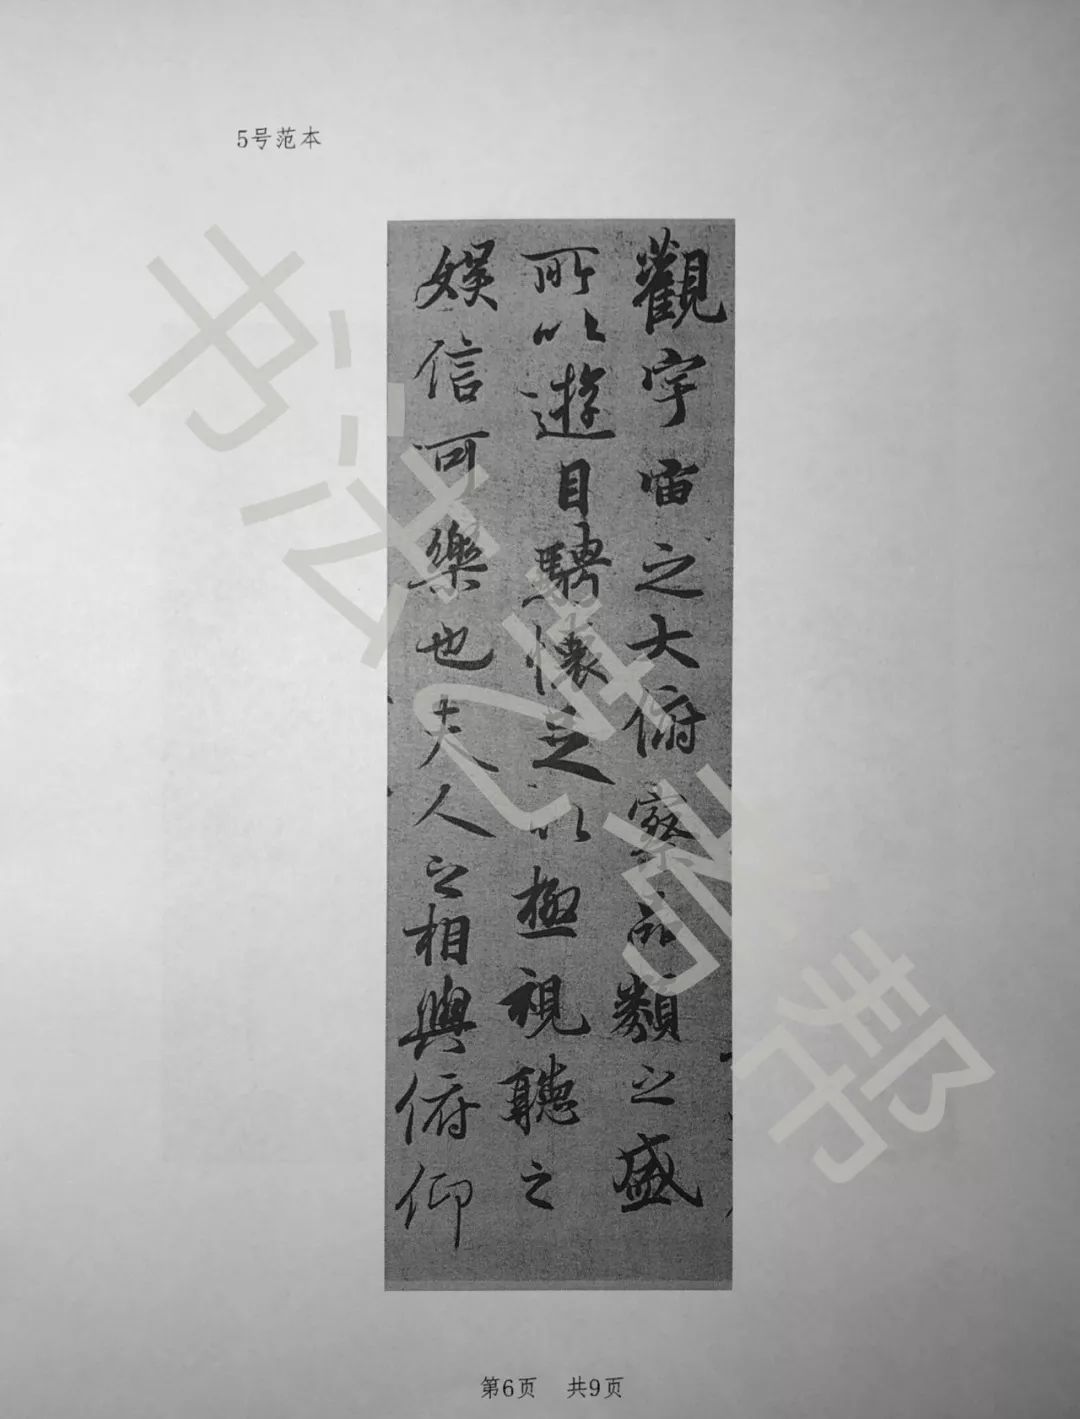 5号范本
觀宇宙之大俯察品類之盛
所以遊目騁懷足以極視聽之
娛信可樂也夫人之相與俯仰
书法艺考帮
第6页 共9页